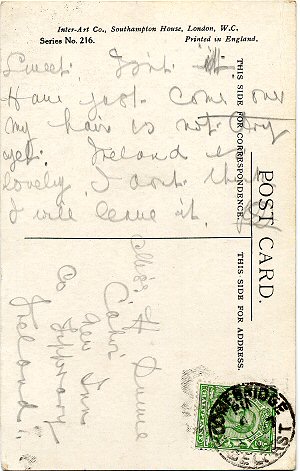 Inter-Art Co., Southampton House, London, W.C.
Series No. 216. Printed in England.
Sweet. Isnt it.
Have just come over
my hair is not dry
yet. Ireland is
lovely I dont think
I will leave it.
THIS SIDE FOR CORRESPONDENCE.
POST CARD.
THIS SIDE FOR ADDRESS.
Miss H. Quirke
Cahir
New Inn
Co Tipperary
Ireland